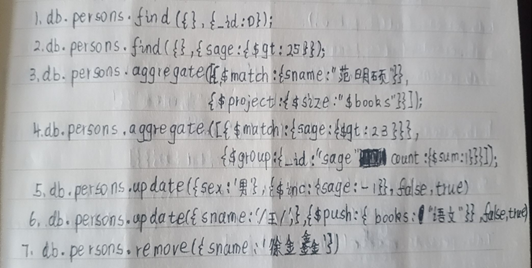 1. db.persons.find({},{_id:0});
2.db.persons.find({},{sage:{$gt:25}});
3.db.persons.aggregate([{$match:{sname:"范明硕"}},
{$project:{$size:"$books"}}]);
4.db.persons.aggregate([{$match:{sage:{$gt:23}}},
{$group:{_id:"sage" count:{$sum:1}}}]);
5. db.persons.update({sex:'男'},{$inc:{sage:-1}},false,true)
6. db.persons.update({sname:'/王/'},{$push:{books:"语文"}},false,true)
7. db.persons.remove({sname:'徐金鑫'})